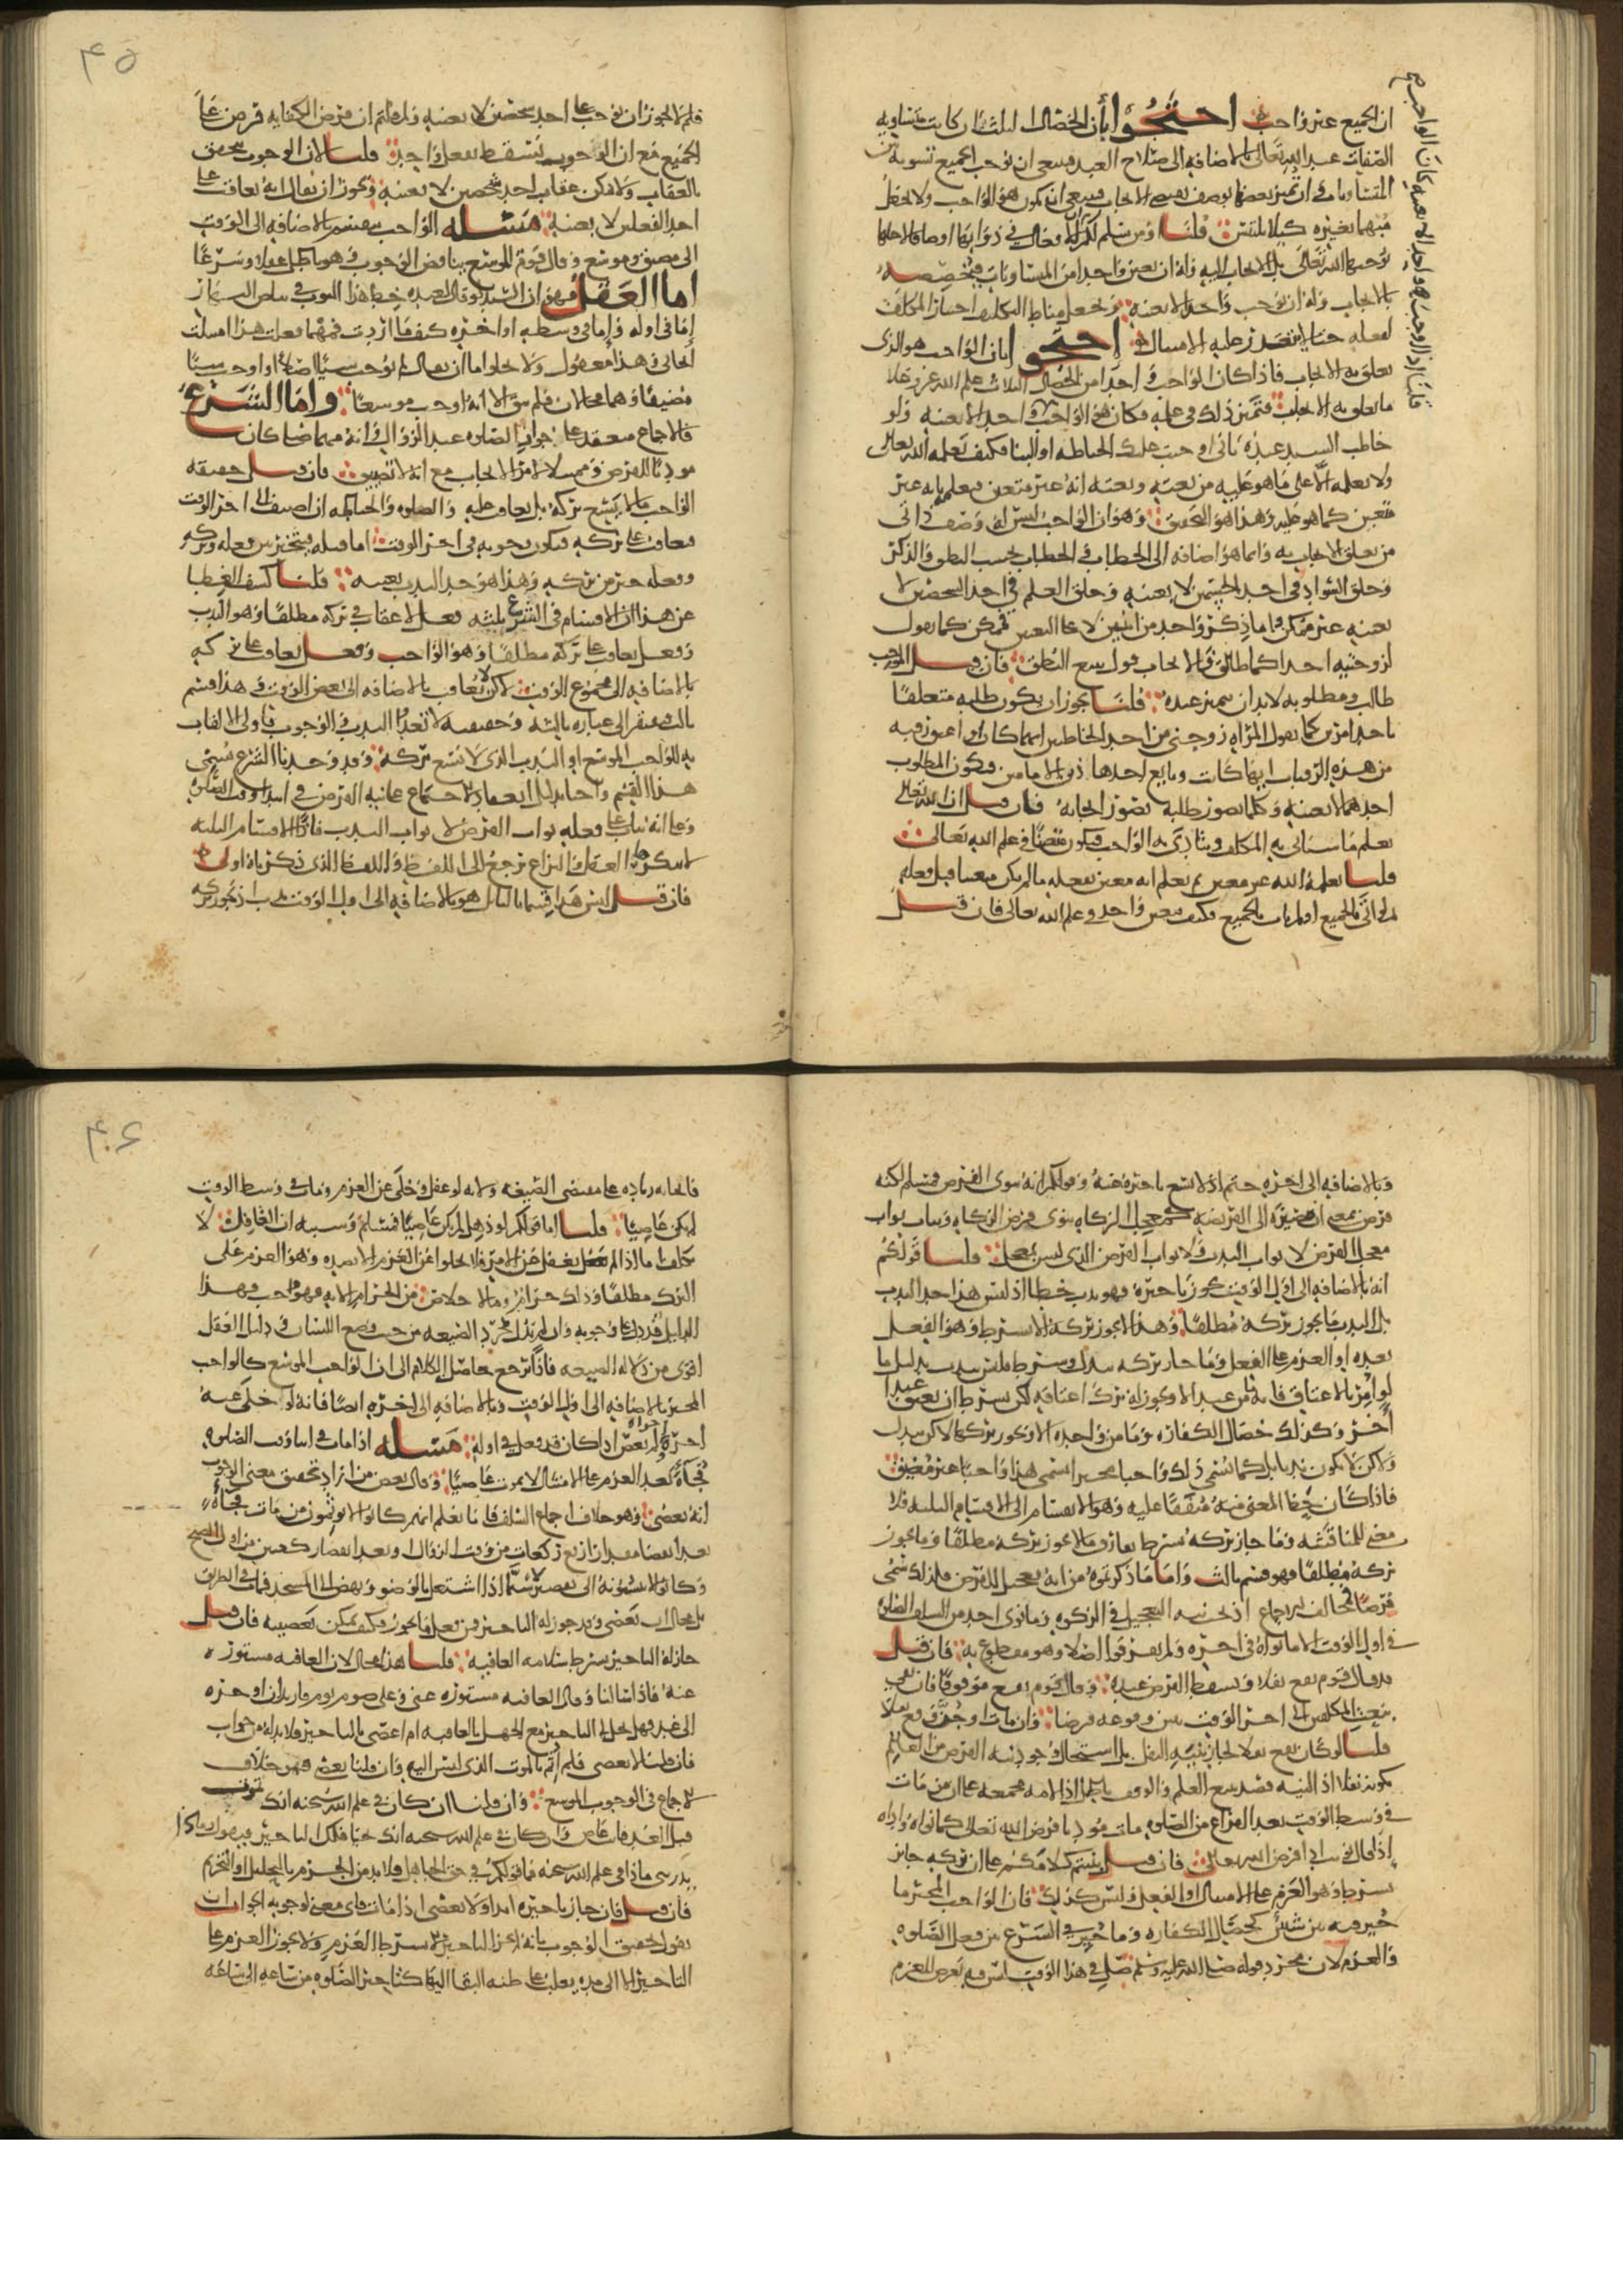 ان الجميع غير واجب احتجوا بان الخصال الثلث ان كانت متساويه
الصفات عند الله تعالى بالاضافه الى صلاح العبد فينبغي ان يوجب الجميع تسويه بين
المتساويات وان تميز بعضها بوصف يقتضي الايجاب فينبغي ان يكون هو الواجب ولا يجعل
مبهما بغيره كيلا يلتبس قلنا ومن سلم لكم ان للافعال في ذواتها اوصافا لاجلها
يوجبها الله تعالى بل الايجاب اليه وله ان يعين واحدا من المتساويات فيخصصه
بالايجاب وله ان يوجب واحدا لا بعينه ويجعل مناط التكليف اختيار المكلف
لفعله حتى لا يتعذر عليه الامتثال احتجوا بان الواجب هو الذي
يتعلق به الايجاب فاذا كان الواجب احدا من الخصال الثلاث علم الله عز وجل
ما تعلق به الايجاب فتميز ذلك في علمه فكان هو الواجب واحدا لا بعينه ولو
خاطب السيد عبده باني اوجبت عليك الخياطه او البنا فكيف يعلمه الله تعالى
ولا يعلمه الا على ما هو عليه من نعته ونعته انه غير متعين فيعلمه انه غير
متعين كما هو عليه وهذا هو التحقيق وهو ان الواجب ليس له وصف ذاتي
من تعلق الايجاب به وانما هو اضافه الى الخطاب والخطاب بحسب النطق والذكر
وخلق السواد في احد الجسمين لا بعينه وخلق العلم في احد الشخصين لا
بعينه غير ممكن واما ذكر واحد من اثنين لا على التعيين فممكن كما يقول
لزوجتيه احداكما طالق فالايجاب قول يتبع النطق فان قيل الموجب
طالب ومطلوبه لا بد ان يتميز عنده قلنا يجوز ان يكون طلبه متعلقا
باحد امرين كما تقول المراه زوجني من احد الخاطبين ايهما كان او اعتق رقبه
من هذه الرقاب ايها كانت وبايع احد هاذين الامامين فيكون المطلوب
احدهما لا بعينه وكلما تصور طلبه تصور ايجابه فان قيل ان الله تعالى
يعلم ما سياتي به المكلف ويتادى به الواجب فيكون متعينا في علم الله تعالى
قلنا يعلمه الله غير معين ثم يعلم انه معين بفعله ما لم يكن متعينا قبل فعله
ثم لو اتى بالجميع او لم يات بالجميع فكيف يتعين واحد في علم الله تعالى فان قيل
فلم لا يجوز ان يوجب على احد شخصين لا بعينه ولم قلتم ان فرض الكفايه فرض على
الجميع مع ان الوجوب يسقط بفعل واحد قلنا لان الوجوب يتحقق
بالعقاب ولا يمكن عقاب احد شخصين لا بعينه ويجوز ان يقال انه يعاقب على
احد الفعلين لا بعينه مسئله الواجب ينقسم بالاضافه الى الوقت
الى مضيق وموسع وقال قوم التوسع يناقض الوجوب وهو باطل عقلا وشرعا
اما العقل فهو ان السيد لو قال لعبده خط هذا الثوب في بياض النهار
اما في اوله واما في وسطه او اخره كيف ما اردت فمهما فعلت هذا امتثلت
ايجابي وهذا معقول ولا يخلوا اما ان يقال لم يوجب شيئا اصلا او اوجب شيئا
مضيقا وهما محالان فلم يبق الا انه اوجب موسعا واما الشرع
فالاجماع منعقد على وجوب الصلوه عند الزوال وانه مهما صلى كان
موديا للفرض وممتثلا لامر الايجاب مع انه لا تضييق فان قيل حقيقه
الواجب ما لا يتسع تركه بل يعاقب عليه والصلوه والخياطه ان اضيف الى اخر الوقت
فيعاقب على تركه فيكون وجوبه في اخر الوقت اما قبله فيتخير بين فعله وتركه
وفعله خير من تركه وهذا هو حد الندب بعينه قلنا كشف الغطا
عن هذا ان الاقسام في الشرع ثلثه فعل لا عقاب في تركه مطلقا وهو الندب
وفعل يعاقب على تركه مطلقا وهو الواجب وفعل يعاقب على تركه
بالاضافه الى مجموع الوقت لكن لا يعاقب بالاضافه الى بعض الوقت وهذا قسم
ثالث فيفتقر الى عباره ثالثه وحقيقته لا تعدوا الندب والوجوب فاولى الالقاب
به الواجب الموسع او الندب الذي لا يتسع تركه وقد وجدنا الشرع يسمي
هذا القسم واجبا بدليل انعقاد الاجماع على نيه الفرض في ابتداء وقت الصلوه
وعلى انه يثاب على فعله ثواب الفرض لا ثواب الندب فاذا الاقسام الثلثه
لا ينكرها العقل والنزاع يرجع الى اللفظ واللفظ الذي ذكرناه اولى
فان قيل ليس هذا قسما ثالثا بل هو بالاضافه الى اول الوقت ندب اذ يجوز تركه
وبالاضافه الى اخره حتم اذ لا يسع تاخيره عنه وقولكم انه ينوي الفرض فمسلم لكنه
فرض بمعنى انه يصير الى الفريضه كمعجل الزكاه ينوي فرض الزكاه ويثاب ثواب
معجل الفرض لا ثواب الندب ولا ثواب الفرض الذي ليس بمعجل قلنا قولكم
انه بالاضافه الى اول الوقت يجوز تاخيره فهو ندب خطا اذ ليس هذا حد الندب
بل الندب ما يجوز تركه مطلقا وهذا لا يجوز تركه الا بشرط وهو الفعل
بعده او العزم على الفعل وما جاز تركه ببدل وشرط فليس بندب بدليل ما
لو امر بالاعتاق فانه ما من عبد الا ويجوز له ترك اعتاقه لكن بشرط ان يعتق عبدا
اخر وكذلك خصال الكفاره ما من واحده الا ويجوز تركها لاكن ببدل
ولاكن لا يكون ندبا بل كما يسمى ذلك واجبا مخيرا يسمى هذا واجبا غير مضيق
فاذا كان حظ المعنى منه متفقا عليه وهو الانقسام الى الاقسام الثلثه فلا
معنى للمناقشه وما جاز تركه بشرط يفارق ما لا يجوز تركه مطلقا وما يجوز
تركه مطلقا فهو قسم ثالث واما ما ذكرتموه من انه تعجيل للفرض فلذلك سمي
فرضا فمخالف للاجماع اذ يجب نيه التعجيل في الزكوه وما نوى احد من السلف الصلوه
في اول الوقت الا ما نواه في اخره ولم يفرقوا اصلا وهو مقطوع به فان قيل
قد قال قوم يقع نفلا ويسقط الفرض عنده وقال قوم يقع موقوفا فان بقي
بنعت المكلفين الى اخر الوقت تبين وقوعه فرضا وان مات او جن وقع نفلا
قلنا لو كان يقع نفلا لجاز بنيه النفل بل استحال وجود نيه الفرض من العالم
بكونه نفلا اذ النيه قصد يتبع العلم والوقف باطل اذ الامه مجمعه على ان من مات
في وسط الوقت بعد الفراغ من الصلوه مات موديا فرض الله تعالى كما نواه واداه
اذ قال نويت اداء فرض الله تعالى فان قيل بنيتم كلامكم على ان تركه جايز
بشرط وهو العزم على الامتثال او الفعل وليس كذلك فان الواجب المخير ما
خير فيه بين شيئين كخصال الكفاره وما خير الشرع بين فعل الصلوه
والعزم ولان مجرد قوله صلى الله عليه وسلم صل في هذا الوقت ليس فيه تعرض للعزم
فايجابه زياده على مقتضى الصيغه ولانه لو غفل وخلى عن العزم ومات في وسط الوقت
لم يكن عاصيا قلنا اما قولكم لو ذهل لم يكن عاصيا فمسلم وسببه ان الغافل لا
يكلف اما اذا لم يغفل عن الامر فلا يخلوا عن العزم الا بضده وهو العزم على
الترك مطلقا وذلك حرام وما لا خلاص من الحرام الا به فهو واجب فهذا
الدليل قد دل على وجوبه وان لم يدل مجرد الصيغه من حيث وضع اللسان ودليل العقل
اقوى من دلاله الصيغه فاذا يرجع حاصل الكلام الى ان الواجب الموسع كالواجب
المخير بالاضافه الى اول الوقت وبالاضافه الى اخره ايضا فانه لو خلى عنه
اخره لم يعص اذا كان قد فعل في اوله مسئله اذا مات في اثناء وقت الصلوه
فجاه بعد العزم على الامتثال لا يموت عاصيا وقال بعض من اراد تحقيق معنى الوجوب
انه يعصي وهو خلاف اجماع السلف فانا نعلم انهم كانوا لا يوثمون من مات فجاه
بعد انقضا مقدار اربع ركعات من وقت الزوال او بعد انقضا ركعتين من اول الصبح
وكانوا لا ينسبونه الى تقصير لا سيما اذا اشتغل بالوضو ونهض الى المسجد فمات في الطريق
بل محال ان يعصي وقد جوز له التاخير فمن فعل ما يجوز فكيف يمكن تعصيه فان قيل
جاز له التاخير بشرط سلامه العاقبه قلنا هذا محال لان العاقبه مستوره
عنه فاذا سالنا وقال العاقبه مستوره عني وعلي صوم يوم واريد ان اوخره
الى غد فهل يحل لي التاخير مع الجهل بالعاقبه ام اعصي بالتاخير فلا بد له من جواب
فان قلنا لا يعصي فلم اثم بالموت الذي ليس اليه وان قلنا يعصي فهو خلاف
الاجماع في الوجوب الموسع وان قلنا ان كان في علم الله سبحنه انك تموت
قبل الغد فانت عاص وان كان في علم الله سبحنه انك تحيا فلك التاخير فيقول وما
يدريني ماذا في علم الله سبحنه فما قولكم في حق الجاهل فلا بد من الجزم بالتحليل او التحريم
فان قيل فان جاز تاخيره ابدا ولا يعصي اذا مات فاي معنى لوجوبه الجواب ان
نقول تحقق الوجوب بانه لم يجز التاخير الا بشرط العزم ولا يجوز العزم على
التاخير الا الى مده يغلب على ظنه البقا اليها كتاخير الصلوه من ساعه الى ساعه